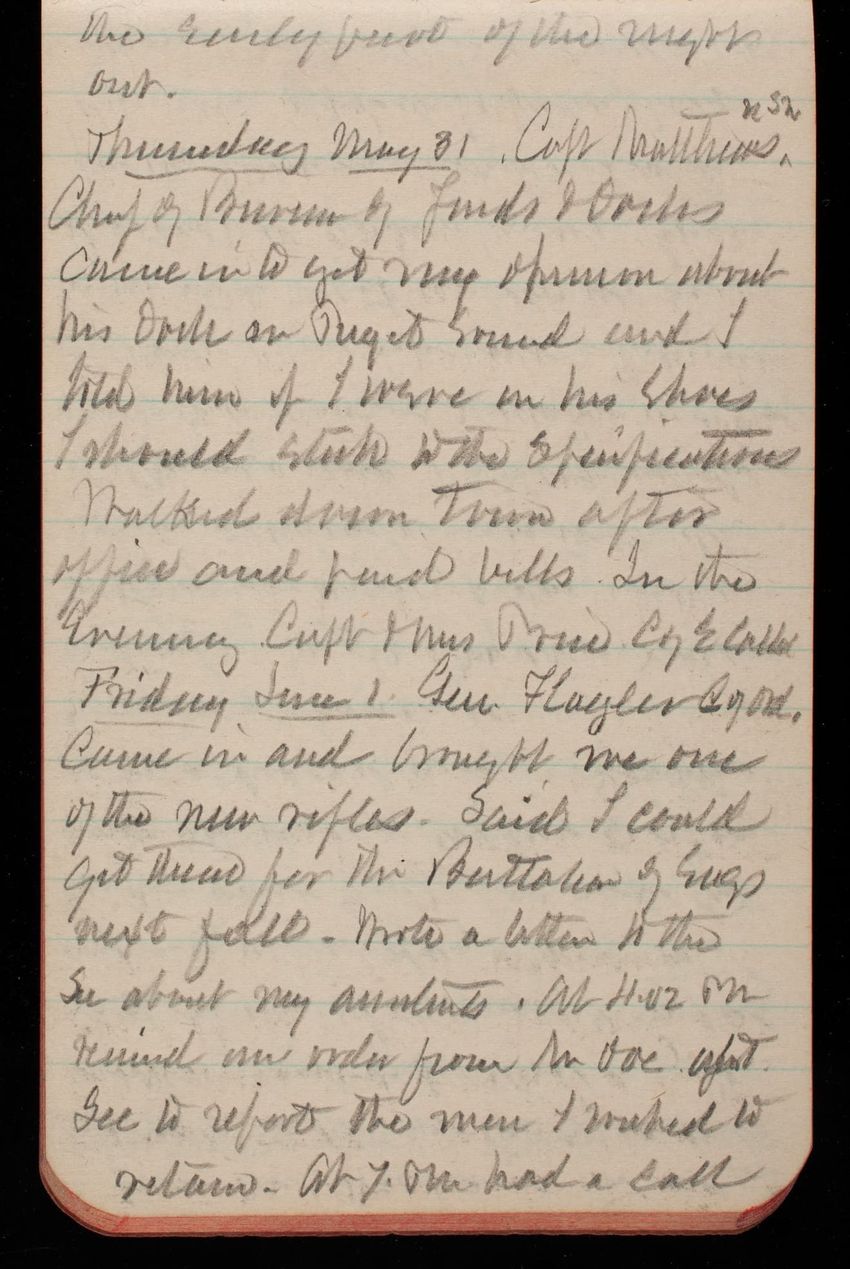 the early part of the night
out.
Thursday May 31. Capt Matthews, USN
Chief of Bureau of Yards & Docks
came in to get my opinion about
his Dock on Puget Sound and I
told him if I were in his shoes
I should stick to the Specifications
Walked down Town after
office and paid bills. In the
Evening Capt & Mrs Price C of E Called
Friday June 1. Gen. Flagler C of Ord.
Came in and brought me one
of the new rifles. Said I could
get these for the Battalion of Engs
next fall. Wrote a letter to the
Sec about my assistants. At 4.02 PM
received an order from Mr Doe asst.
Sec to report the men I wished to
retain. At 7. PM had a call